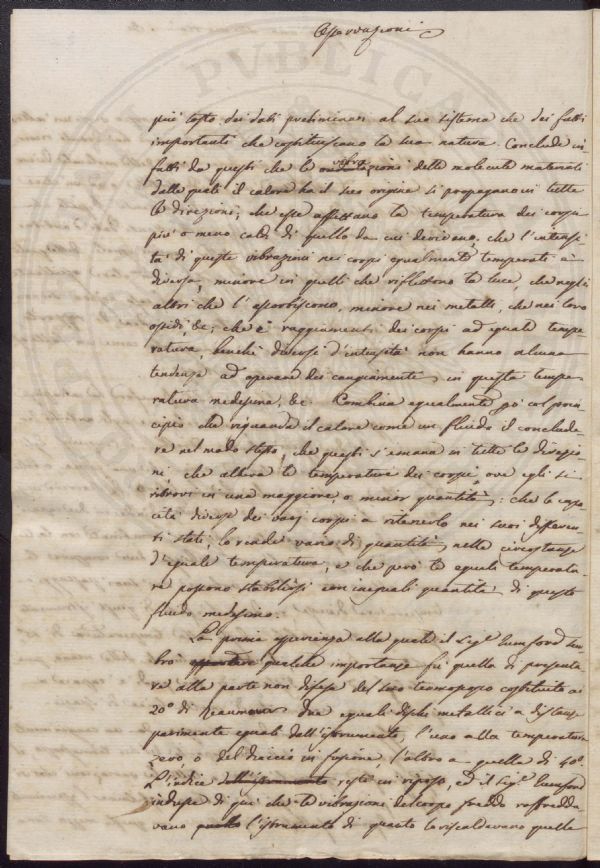 Osservazioni
più tosto dei dati preliminari al suo sistema che dei fatti
importanti che costituiscano la sua natura. Conclude in
fatti da questi che le vibrazioni delle molecule materiali
dalle quali il calore ha il suo origine si propagano in tutte
le direzioni; che esse affettano la temperatura dei corpi
più o meno caldi di quello da cui derivano, che l'intensi
tà di queste vibrazioni nei corpi egualmente temperati è
diversa, minore in quelli che riflettono la luce, che negli
altri che l'assorbiscono, minore nei metalli, che nei loro
ossidi, &c; che i raggiamenti dei corpi ad eguale tempe-
ratura, benchè diversi d'intensità non hanno alcuna
tendenza ad operare dei cangiamenti in questa tempe
ratura medesima, &c. Combina egualmente col prin-
cipio che riguarda il calore come un fluido il conclude-
re nel modo stesso, che questi s'emana in tutte le direzio
ni, che altera le temperature dei corpi ove egli si
ritrovi in una maggiore, o minor quantità; che le capa
cità diverse dei varj corpi a ritenerlo nei suoi differen-
ti stati, lo rende vario di quantità nelle circostanze
d'eguale temperatura, e che però le eguali temperatu-
re possono stabilirsi con ineguali quantità di questo
fluido medesimo.
La prima esperienza alla quale il Sig.r Rumford sem
brò qualche importanza fù quella di presenta-
re alla parte non difesa del suo termoscopio costituito a
20° di Reaumur due eguali dischi metallici a distanze
parimente eguali dall'istrumento, l'uno alla temperatura
zero, o del diaccio in fusione, l'altro a quella di 40°.
L'indice dell'istrumento restò in riposo, ed il Sig.r Rumford
indusse di qui che le vibrazioni del corpo freddo raffredda
vano l'istrumento di quanto lo riscaldavano quelle